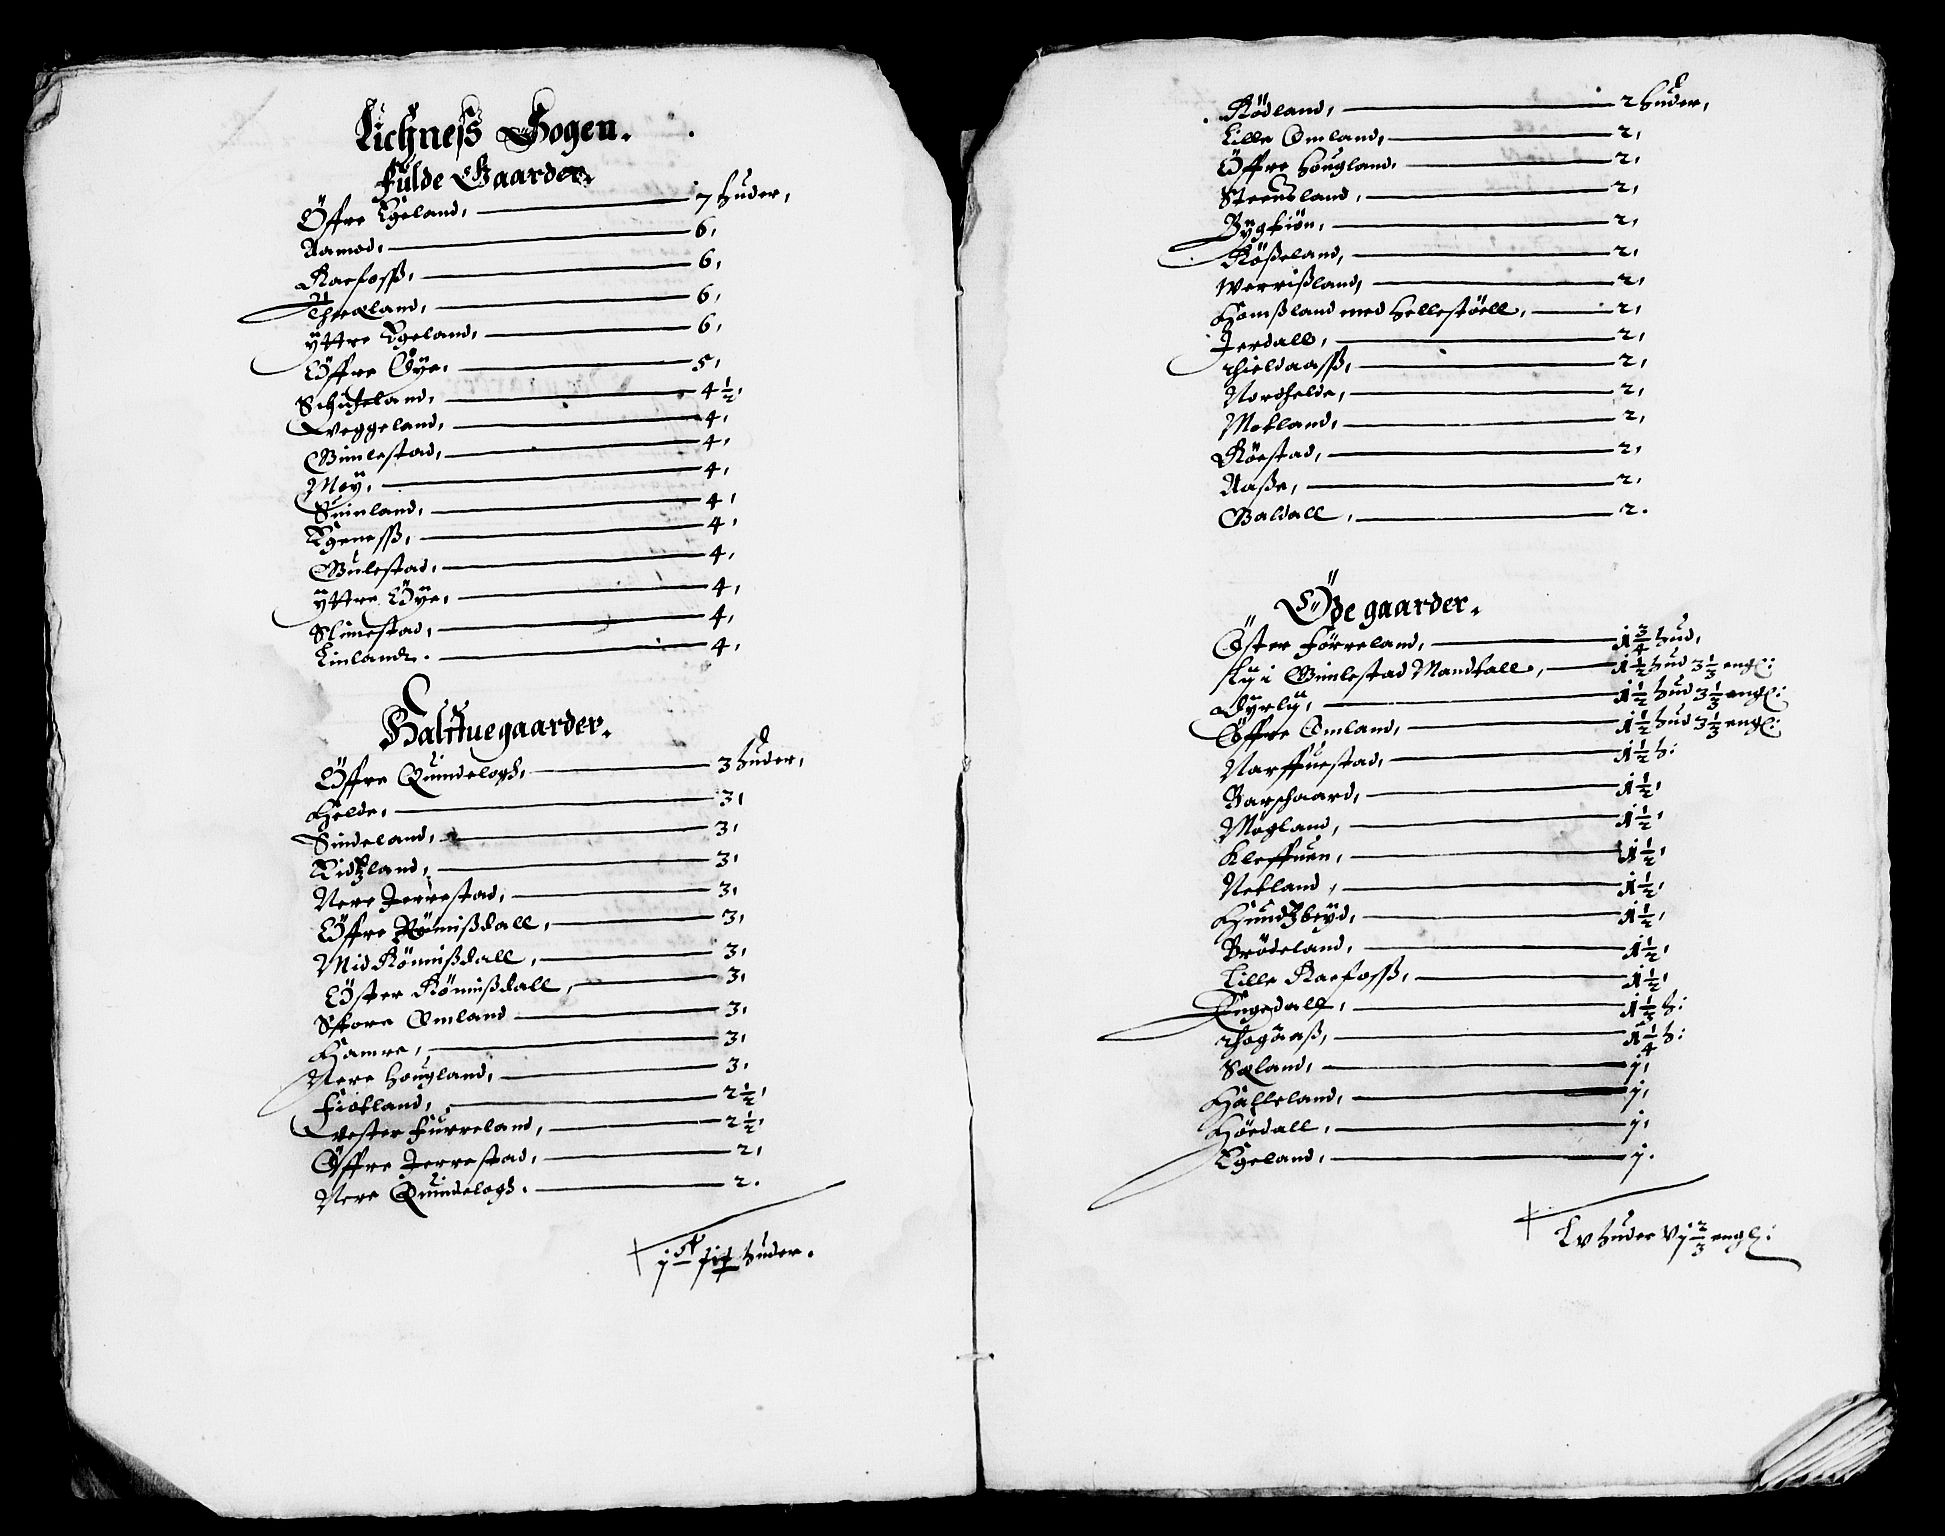 Lichness Sogen.
Fulde Gaarder.
Öffre Egeland, 7 huder,
Aamod, 6,
Raefoss, 6,
Theeland, 6,
ÿttre Egeland, 6,
Öffre Öye, 5,
Schufeland, 4 1/2,
Qveggeland, 4,
Gimlestad, 4,
Moÿ, 4,
Suinland, 4,
Egeness, 4,
Gulestad, 4,
ÿttre Öye, 4,
Slimestad, 4,
Linland. 4,
Halffuegaarder.
Öffre Quindelogh, 3 huder,
Helde, 3,
Sindeland, 3,
Eidzland, 3,
Nere Jerrestad, 3,
Öffre Römißdall, 3,
Mid Römißdall, 3,
Öster Römißdall, 3,
Store Omland 3,
Hamre, 3,
Nere Hougland, 3,
Fiotland, 2 1/2,
Vester Furreland, 2 1/2,
Öffre Jerrestad, 2,
Nere Quindelogh. 2.
huder.
Rödland, 2 huder,
Lille Omland, 2,
Öffre Hougland. 2,
Steensland, 2,
Bygtiön, 2,
Rößeland, 2,
Werrißland, 2,
Homßland med Hellestöell, 2,
Jerdall, 2,
Thieldaaß, 2,
Nordhelde, 2,
Motland, 2,
Röestad, 2,
Aaße, 2,
Galdall, 2.
Öde gaarder.
Öster Förreland, 1 3/4 hud,
Lÿ i Gimlestad Mandtall, 1 1/2 hud 3 1/3 engl:
Dÿrlÿ, 1 1/2 hud 3 1/3 engl:
Öffre Omland, 1 1/2 hud 3 1/3 engl:
Narffuestad, 1 1/2 h:
Barschaard, 1 1/2,
Mogland, 1 1/2,
Kleffuen, 1 1/2,
Netland, 1 1/2,
Hundzbeÿd, 1 1/2,
Brödeland, 1 1/2,
Lille Raefoss, 1 1/2,
Engedall, 1 1/3 h:
Thogaaß, 1 1/4 h:
Sæland, j,
Hälleland, j,
Höedall, j,
Egeland, j.
Lv huder vj 2/3 engl: